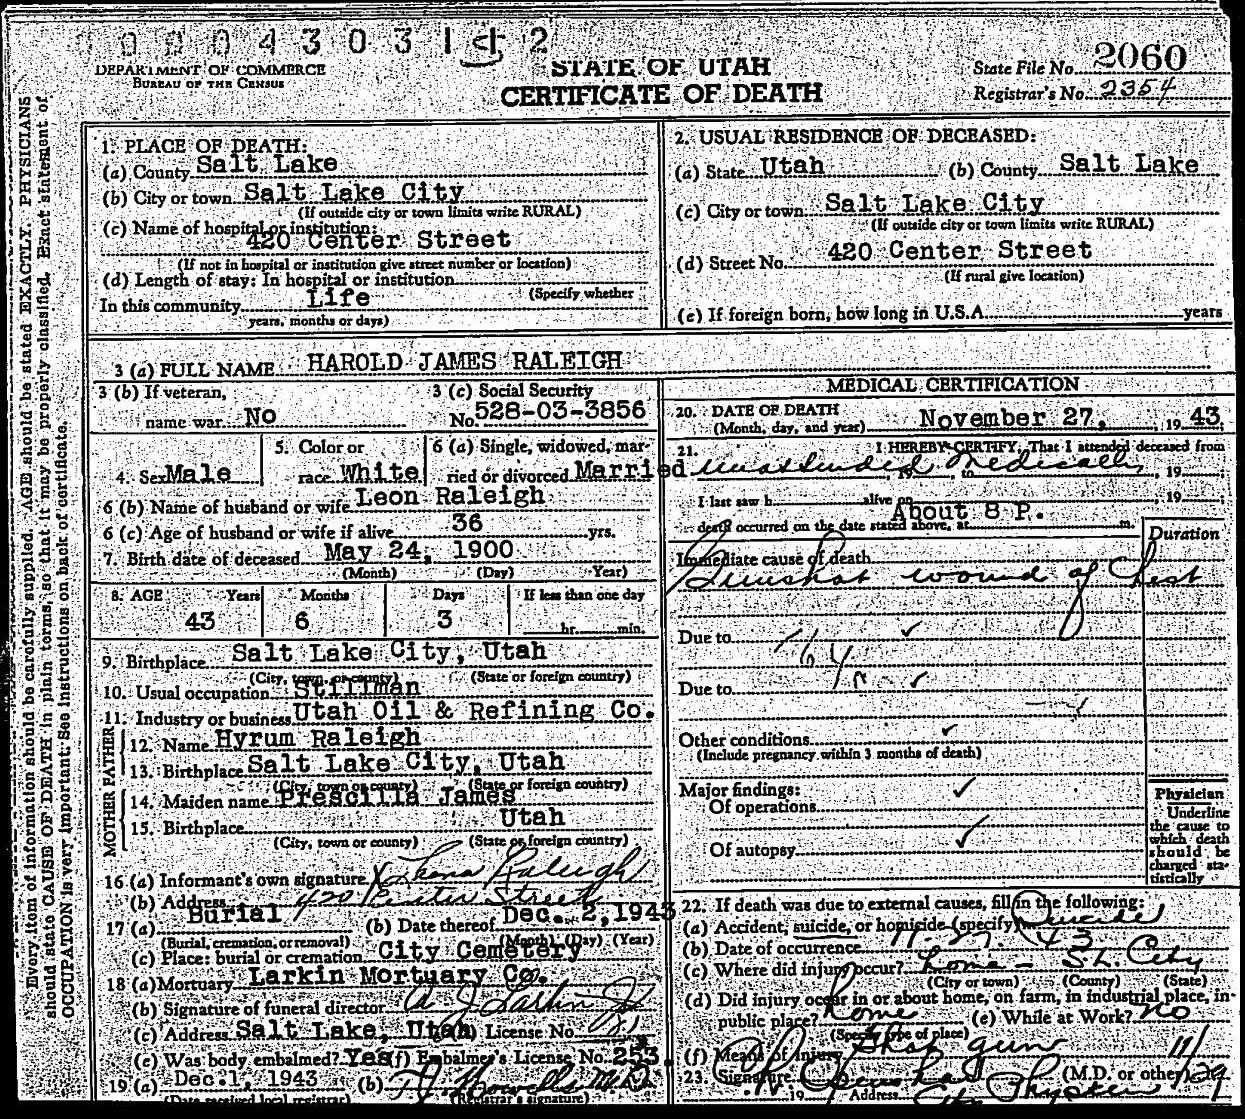 0004303142
DEPARTMENT OF COMMERCE
BUREAU OF THE CENSUS
STATE OF UTAH
CERTIFICATE OF DEATH
State File No. 2060
Registrar's No. 2354
Every item of information should be carefully supplied. AGE should be stated EXACTLY. PHYSICIANS
should state CAUSE OF DEATH in plain terms, so that it may be properly classified. Exact statement of
OCCUPATION is very important. See instructions on back of certificate.
1. PLACE OF DEATH:
(a) County Salt Lake
(b) City or town Salt Lake City
(If outside city or town limits write RURAL)
(c) Name of hospital or institution:
420 Center Street
(If not in hospital or institution give street number or location)
(d) Length of stay: In hospital or institution
(Specify whether
In this community Life
years, months or days)
2. USUAL RESIDENCE OF DECEASED:
(a) State Utah (b) County Salt Lake
(c) City or town Salt Lake City
(If outside city or town limits write RURAL)
(d) Street No. 420 Center Street
(If rural give location)
(e) If foreign born, how long in U.S.A. years
3 (a) FULL NAME HAROLD JAMES RALEIGH
3 (b) If veteran,
name war No
3 (c) Social Security
No. 528-03-3856
4. Sex Male
5. Color or
race White
6 (a) Single, widowed, mar-
ried or divorced Married
6 (b) Name of husband or wife Leon Raleigh
6 (c) Age of husband or wife if alive 36 yrs.
7. Birth date of deceased May 24, 1900
(Month) (Day) Year)
8. AGE Years Months Days If less than one day
43 6 3 hr. min.
9. Birthplace Salt Lake City, Utah
(City, town, or county) (State or foreign country)
10. Usual occupation Stillman
11. Industry or business Utah Oil & Refining Co.
FATHER
12. Name Hyrum Raleigh
13. Birthplace Salt Lake City, Utah
(City, town or county) (State or foreign country)
MOTHER
14. Maiden name Prescilla James
15. Birthplace Utah
(City, town or county) (State or foreign country)
16 (a) Informant's own signature X Leona Raleigh
(b) Address 420 Center Street
17 (a) Burial (b) Date thereof Dec. 2, 1943
(Burial, cremation, or removal) (Month) (Day) (Year)
(c) Place: burial or cremation City Cemetery
18 (a) Mortuary Larkin Mortuary Co.
(b) Signature of funeral director A J Larkin Jr
(c) Address Salt Lake, Utah License No.
(e) Was body embalmed? Yes (f) Embalmer's License No. 253.
19 (a) Dec. 1, 1943 (b)
(Date received local registrar) (Registrar's signature)
MEDICAL CERTIFICATION
20. DATE OF DEATH
(Month, day, and year) November 27, 19 43
21. I HEREBY CERTIFY, That I attended deceased from
unattended medically, 19 , to , 19
I last saw h alive on , 19
About 8 P.
death occurred on the date stated above, at m.
Duration
Immediate cause of death
Gunshot wound of Chest
Due to 164
Due to
Other conditions
(Include pregnancy within 3 months of death)
Major findings:
Of operations
Of autopsy
Physician
Underline
the cause to
which death
should be
charged sta-
tistically
22. If death was due to external causes, fill in the following:
(a) Accident, suicide, or homicide (specify) Suicide
(b) Date of occurrence 11-27-43
(c) Where did injury occur? home - S.L. City
(City or town) (County) (State)
(d) Did injury occur in or about home, on farm, in industrial place, in-
public place? home (e) While at Work? No
(Specify type of place)
(f) Means of injury Shot gun
23. Signature (M.D. or other) 11/29
19 Address City